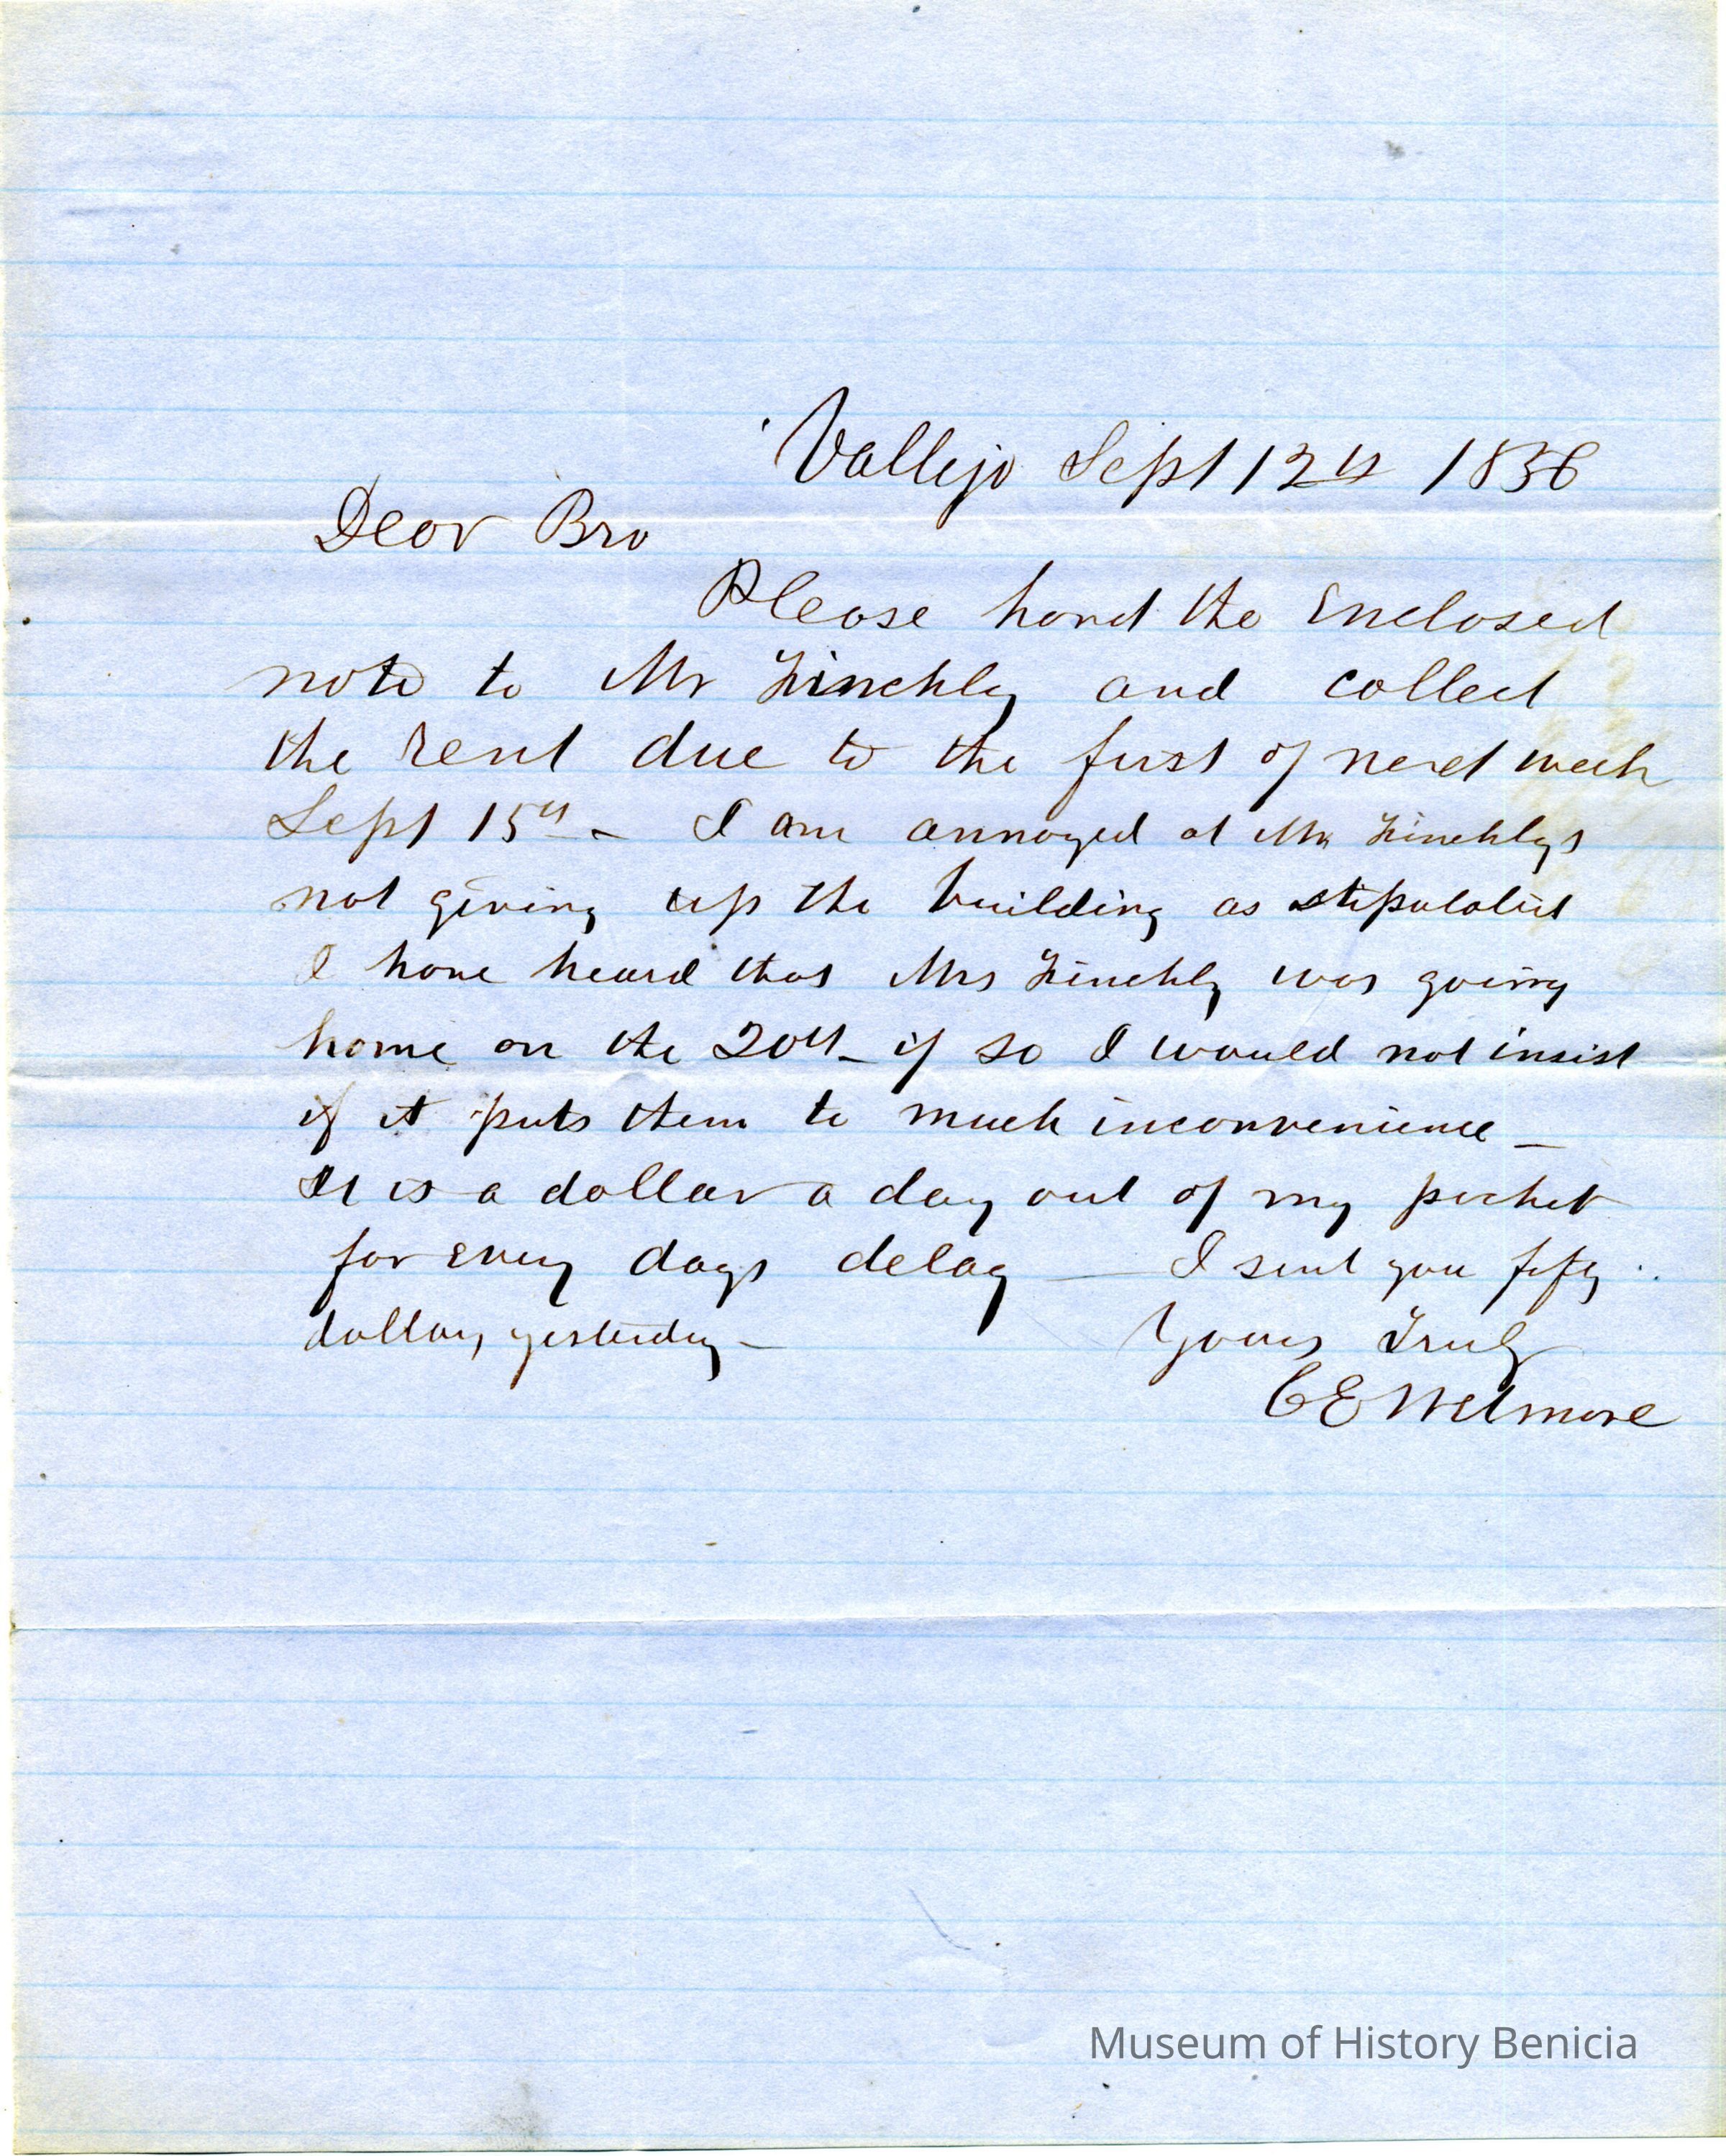 Vallejo Sept 12th 1856
Dear Bro
Please hand the Enclosed
note to Mr Finchly and collect
the rent due to the first of next week
Sept 15th - I am annoyed at Mr Finchlys
not giving up the building as stipulated
I have heard that Mrs Finchly was going
home on the 20th - if so I would not insist
if it puts them to much inconvenience -
It is a dollar a day out of my pocket
for every days delay — I sent you fifty
dollars yesterday -
Yours Truly
C E Wetmore
Museum of History Benicia